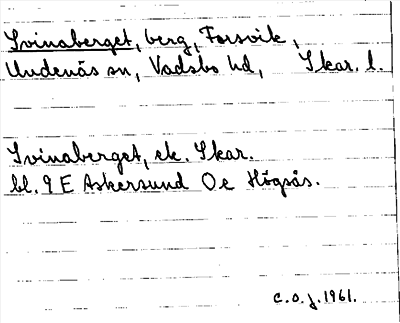 Svinaberget, berg, Forsvik,
Undenäs sn, Vadsbo hd, Skar. l.
Svinaberget, ek. Skar.
bl. 9 E Askersund Oe Högsås.
C.O.J. 1961.